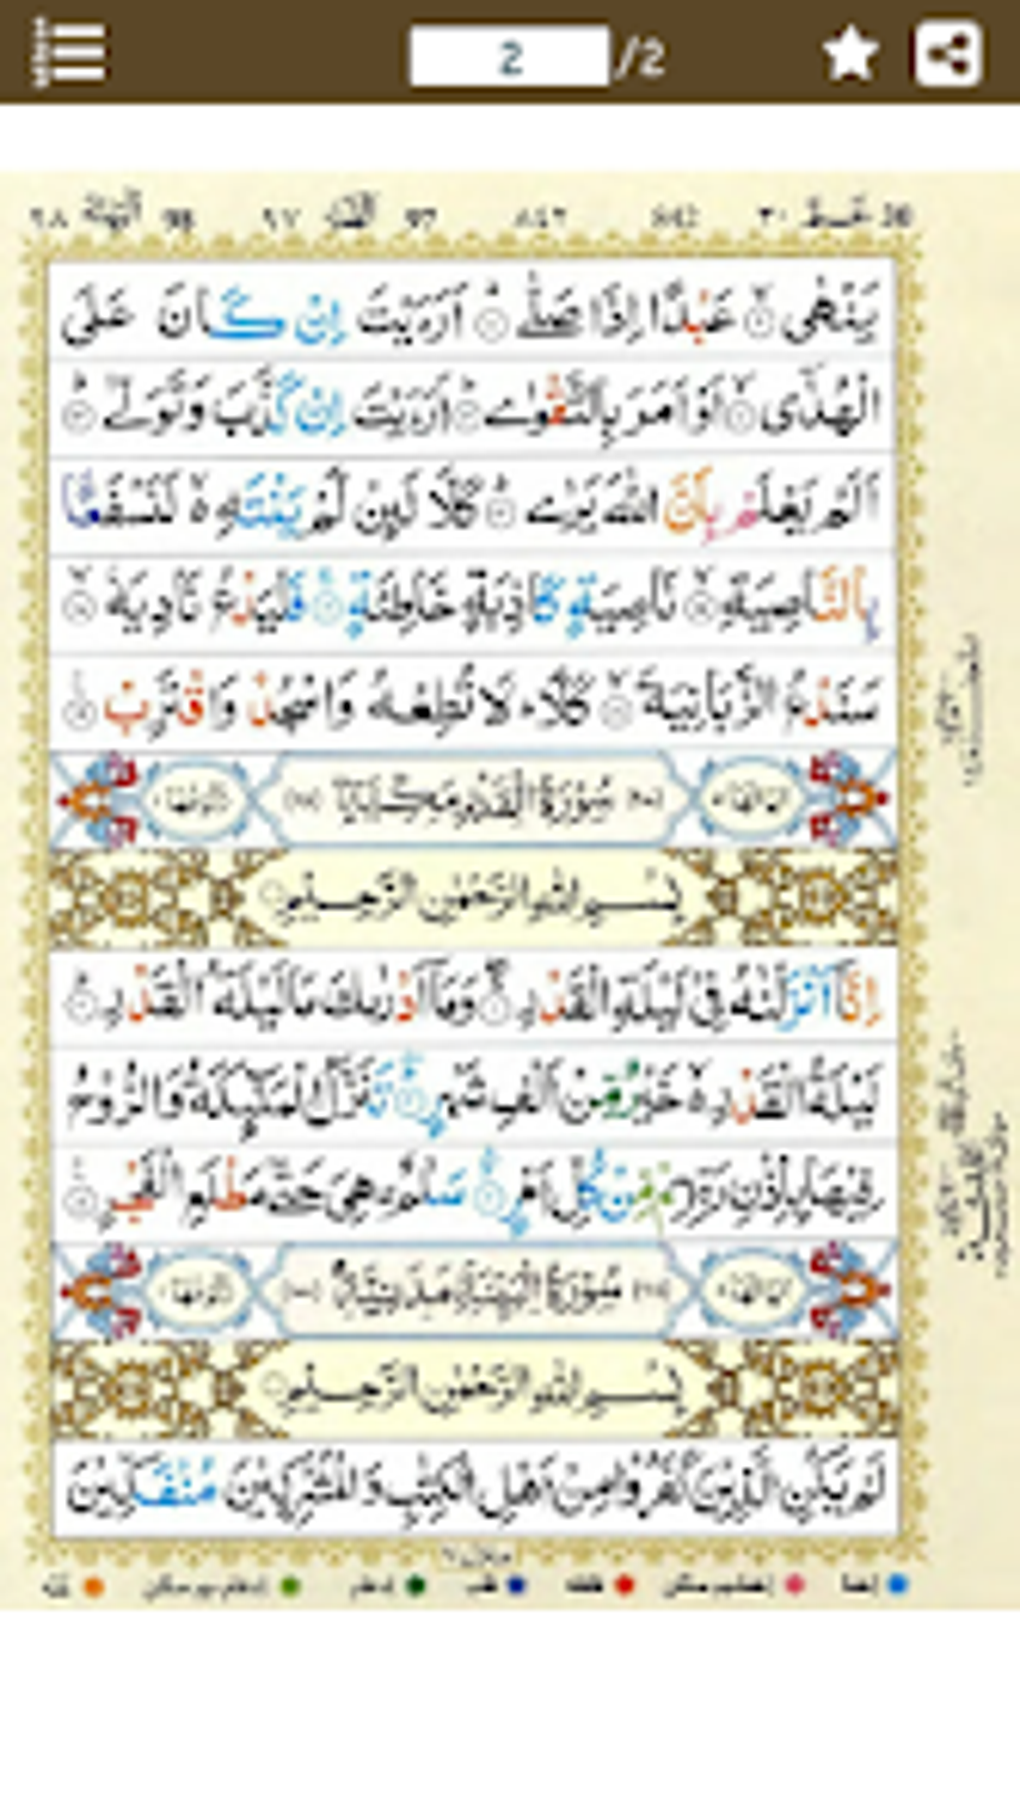 2 /2
30 ٣٠ 842 ٨٤٢ 97 ٩٧ 98 ٩٨
يَنْهٰى ۙ عَبْدًا اِذَا صَلّٰى ؕ اَرَءَيْتَ اِنْ كَانَ عَلَى
الْهُدٰٓى ۙ اَوْ اَمَرَ بِالتَّقْوٰى ؕ اَرَءَيْتَ اِنْ كَذَّبَ وَتَوَلّٰى ؕ
اَلَمْ يَعْلَمْ بِاَنَّ اللّٰهَ يَرٰى ؕ كَلَّا لَىِٕنْ لَّمْ يَنْتَهِ ۙ لَنَسْفَعًۢا
بِالنَّاصِيَةِ ۙ نَاصِيَةٍ كَاذِبَةٍ خَاطِئَةٍ ۚ فَلْيَدْعُ نَادِيَهٗ ۙ
سَنَدْعُ الزَّبَانِيَةَ ۙ كَلَّا ؕ لَا تُطِعْهُ وَاسْجُدْ وَاقْتَرِبْ
سُوْرَةُ الْقَدْرِ مَكِّيَّةٌ
بِسْمِ اللّٰهِ الرَّحْمٰنِ الرَّحِيْمِ
اِنَّآ اَنْزَلْنٰهُ فِيْ لَيْلَةِ الْقَدْرِ ۚ وَمَآ اَدْرٰىكَ مَا لَيْلَةُ الْقَدْرِ ؕ
لَيْلَةُ الْقَدْرِ ۙ خَيْرٌ مِّنْ اَلْفِ شَهْرٍ ؕ تَنَزَّلُ الْمَلٰٓىِٕكَةُ وَالرُّوْحُ
فِيْهَا بِاِذْنِ رَبِّهِمْ مِّنْ كُلِّ اَمْرٍ ۙ سَلٰمٌ ۛ هِيَ حَتّٰى مَطْلَعِ الْفَجْرِ
سُوْرَةُ الْبَيِّنَةِ مَدَنِيَّةٌ
بِسْمِ اللّٰهِ الرَّحْمٰنِ الرَّحِيْمِ
لَمْ يَكُنِ الَّذِيْنَ كَفَرُوْا مِنْ اَهْلِ الْكِتٰبِ وَالْمُشْرِكِيْنَ مُنْفَكِّيْنَ